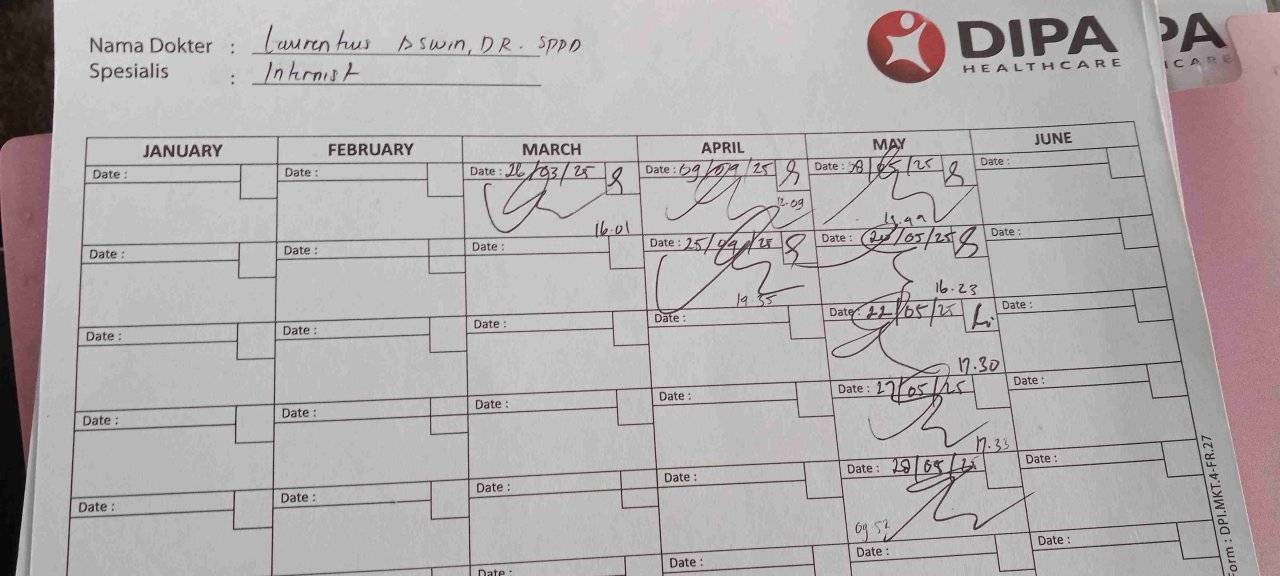 Nama Dokter : Laurentius Aswin, DR. SPPD
Spesialis : Internist
DIPA
HEALTHCARE
PA
CARE
JANUARY FEBRUARY MARCH APRIL MAY JUNE
Date : Date : Date : 26/03/25 Date : 09/04/25 Date : 08/05/25 Date :
16.01 12.09
Date : Date : Date : Date : 25/04/25 Date : 20/05/25 Date :
19.35 16.23
Date : Date : Date : Date : Date : 22/05/25 Date :
17.30
Date : Date : Date : Date : Date : 27/05/25 Date :
17.33
Date : Date : Date : Date : Date : 28/05/25 Date :
09.52
Date : Date : Date : Date :
Form : DPI.MKT.4-FR.27